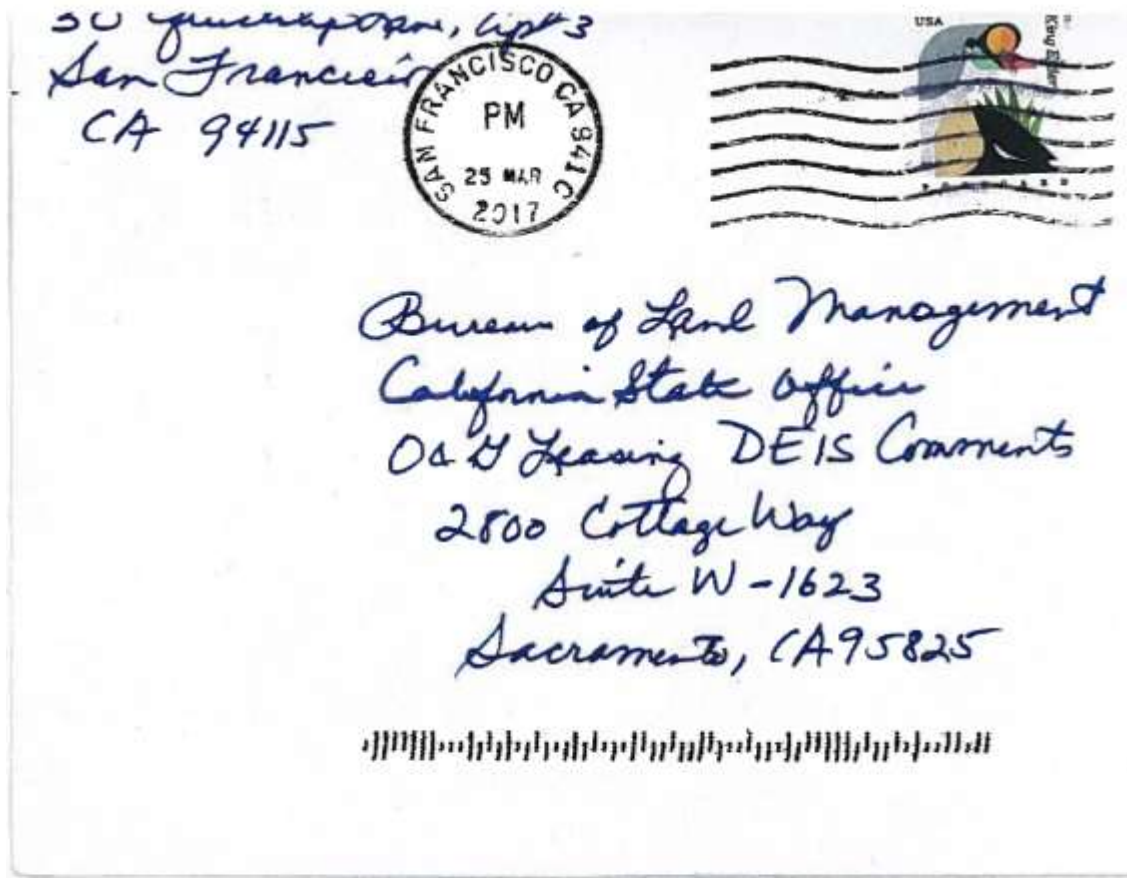 30 Apt 3
San Francisco
CA 94115
SAN FRANCISCO CA 941 C
PM
25 MAR
2017
USA
King Eider
POSTCARD
Bureau of Land Management
California State Office
O & G Leasing DEIS Comments
2800 Cottage Way
Suite W-1623
Sacramento, CA 95825